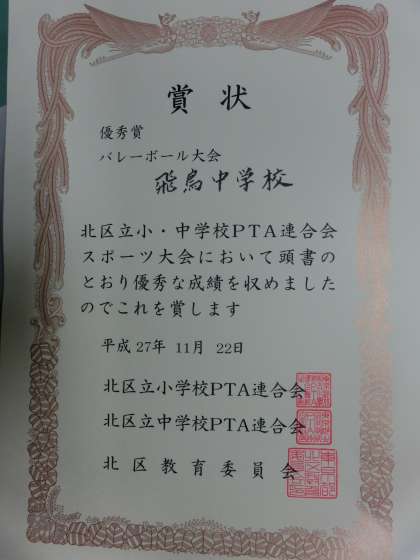 賞状
優秀賞
バレーボール大会
飛鳥中学校
北区立小・中学校PTA連合会
スポーツ大会において頭書の
とおり優秀な成績を収めました
のでこれを賞します
平成27年 11月 22日
北区立小学校PTA連合会
北区立中学校PTA連合会
北区教育委員会